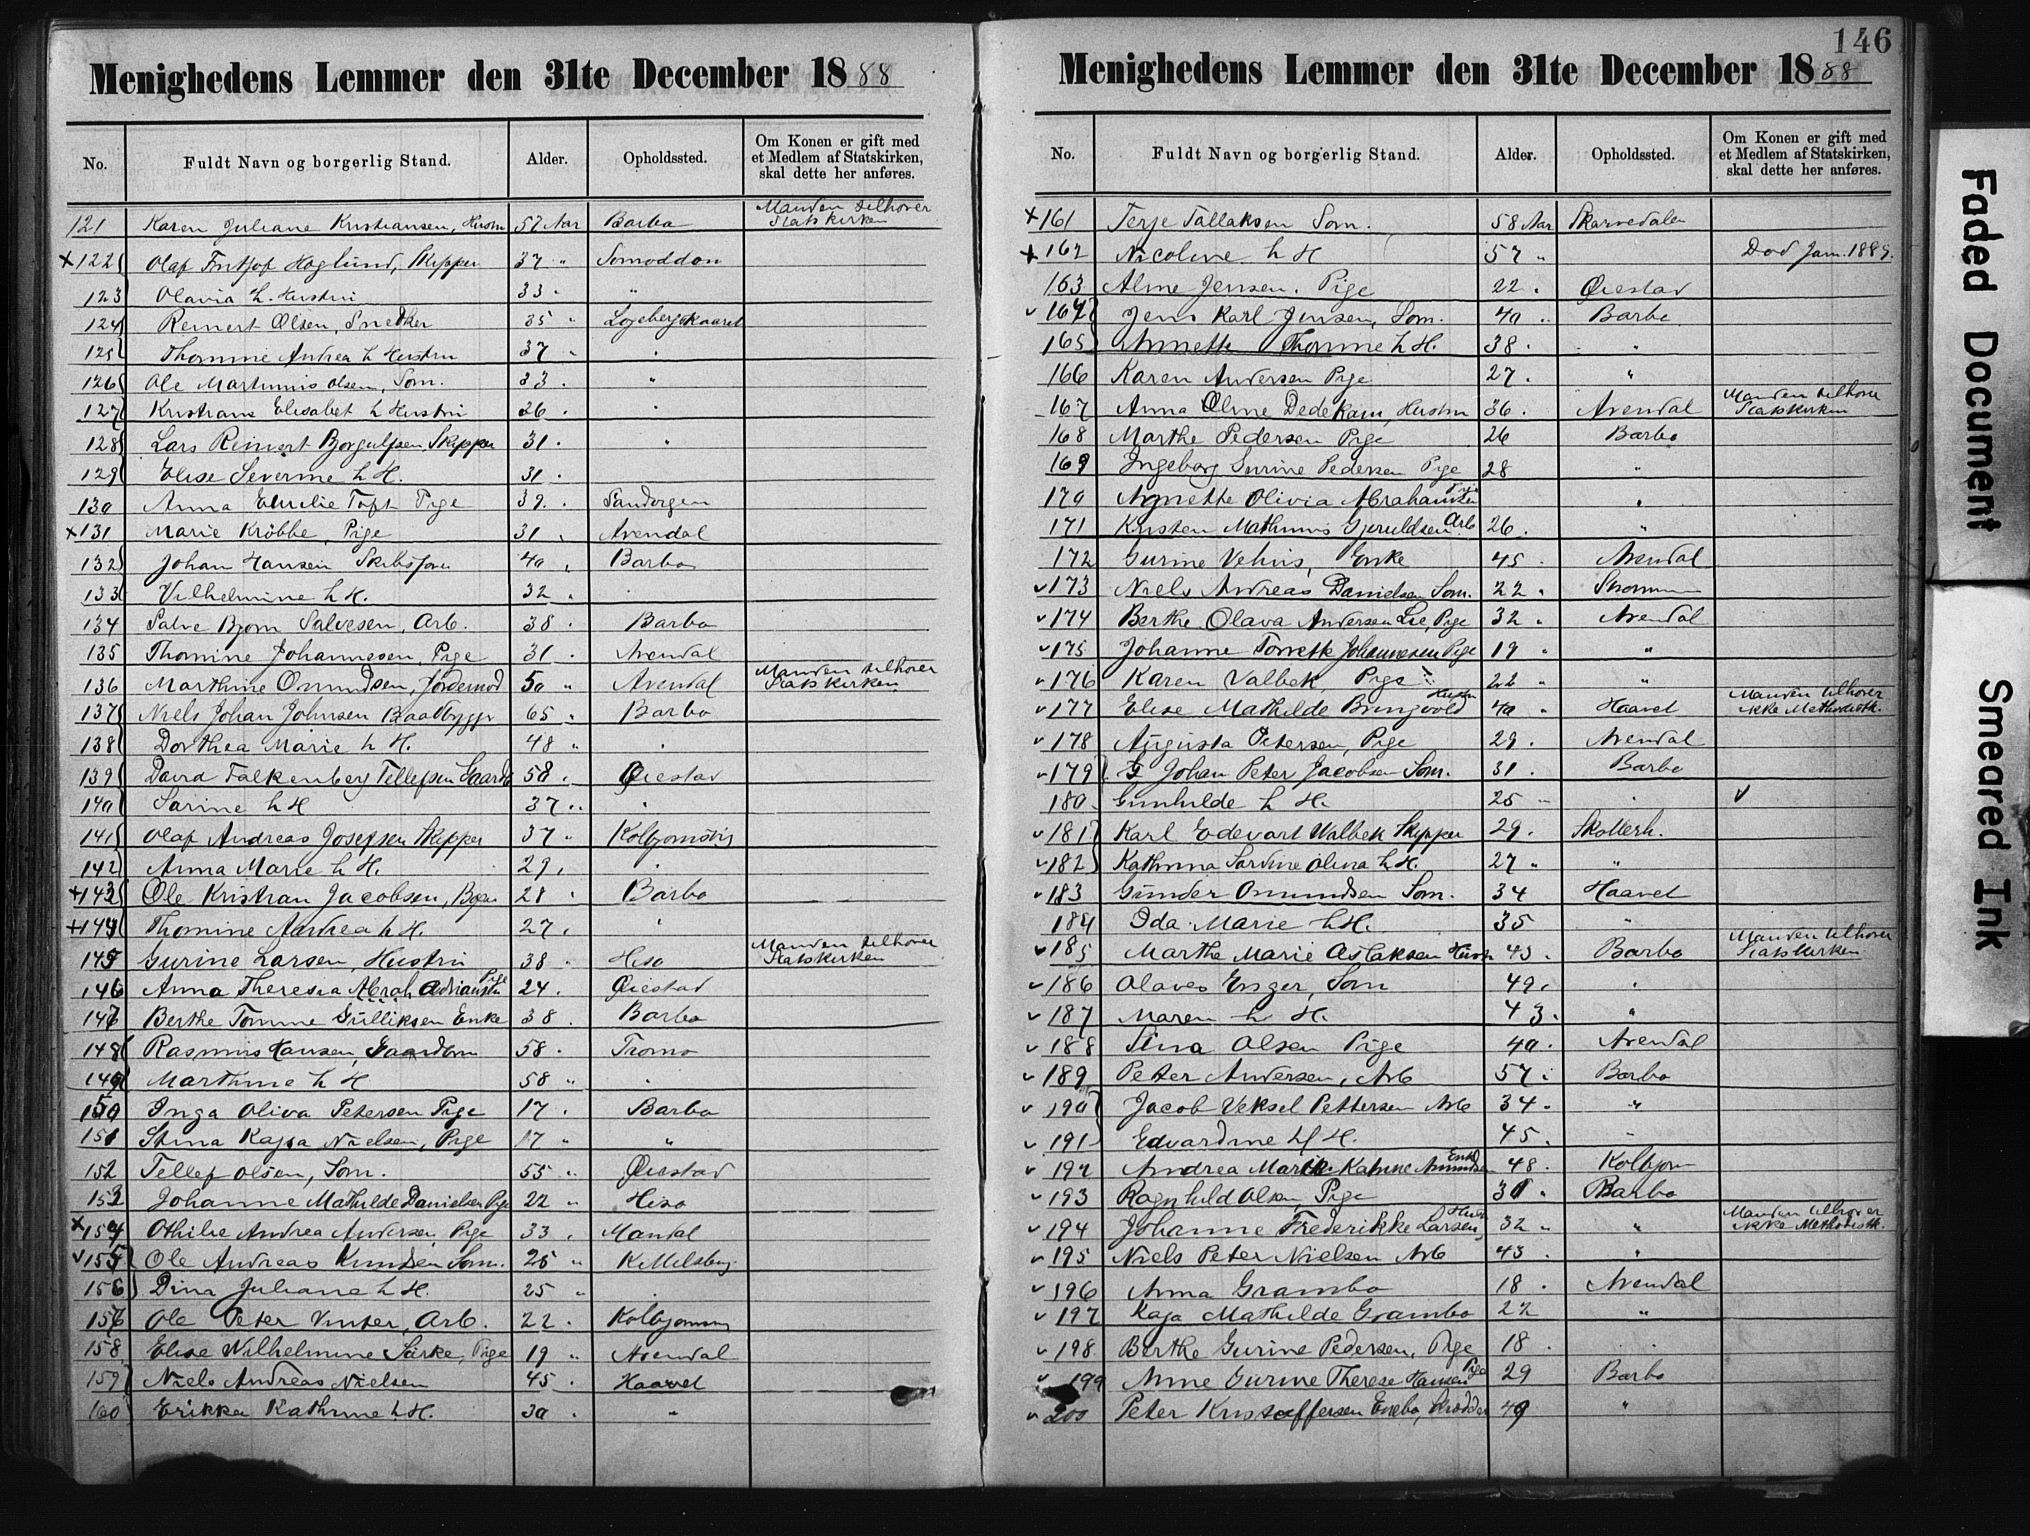 Menighedens Lemmer den 31te December 1888
No. Fuldt Navn og borgerlig Stand. Alder. Opholdssted. Om Konen er gift med et Medlem af Statskirken, skal dette her anføres.
121 Karen Juliane Kristiansen, Hustru 57 Aar Barbo Manden tilhører Statskirken
x 122 Olaf Fritjof Hoglund, Skipper 37 " Somoddon
123 Olavia h. Hustru 33 "
124 Reinert Olsen, Snedker 35 "
125 Thomine Andrea h Hustru 37 "
126 Ole Martinius Olsen, Som. 33 . "
127 Kristiane Elisabet h Hustru 26 .
128 Lars Reinert Borgulfsen Skipper 31 . "
129 Elise Severine h H. 31 .
130 Anna Emilie Toft Pige 39 .
x 131 Marie Krøbbe, Pige 31 Arendal
132 Johan Hansen 40 Barbo
133 Vilhelmine h H. 32
134 Salve Bjorn Salvesen, Arb. 38 . Barbo
135 Thomine Johannesen, Pige 31 . Arendal
136 Marthine Omundsen, Jordemod 50 " Arendal Manden tilhører Statskirken
137 Niels Johan Johnsen Baadbygger 65 " Barbo
138 Dorthea Marie h H. 48 "
139 David Falkenberg Tellefsen Gaardb 58 . Øiestad
140 Sarine h H 37 "
141 Olaf Andreas Josefsen Skipper 37 " Kolbjornsvig
142 Anna Marie h H. 29 .
x 143 Ole Kristian Jacobsen, 28 . Barbo
x 144 Thomine Andrea h H. 27 .
145 Gurine Larsen, Hustru 38 " Hiso Manden tilhører Statskirken
146 Anna Theresia Abrah Adriansen Pige 24 . Øiestad
147 Berthe Tomine Gulliksen Enke 38 . Barbo
148 Rasmus Hansen, Gaardbr 58 . Tromo
149 Marthine h H 58 "
150 Inga Oliva Petersen Pige 17 . Barbo
151 Stina Kajsa Nielsen, Pige 17 " "
152 Tellef Olsen, Som. 55 " Øiestad
153 Johanne Mathilde Danielsen Pige 22 " Hiso
x 154 Othilie Andrea Andersen Pige 33 . Mandal
v 155 Ole Andreas Knudsen Som. 25 "
156 Dina Juliane h H. 25 "
157 Ole Peter Vinter, Arb. 22 . Kolbjornsv
158 Elise Wilhelmine Särke, Pige 19 " Arendal
159 Niels Andreas Nielsen 45 . Haavet
160 Erikka Kathrine h H. 30 . "
146
Menighedens Lemmer den 31te December 1888
No. Fuldt Navn og borgerlig Stand. Alder. Opholdssted. Om Konen er gift med et Medlem af Statskirken, skal dette her anføres.
x 161 Terje Tallaksen Som. 58 Aar Skarvedalen
x 162 Nicoline h H 57 " Død Jan. 1889.
163 Aline Jensen. Pige 22 . Øiestad
v 164 Jens Karl Jensen, Som. 40 " Barbo
165 Annette Thomine h H. 38 . "
166 Karen Andersen Pige 27 . "
167 Anna Oline Dedekam, Hustru 36 . Arendal Manden tilhører Statskirken
168 Marthe Pedersen Pige 26 Barbo
169 Ingeborg Gurine Pedersen Pige 28 "
170 Agnette Olivia Abrahamsen Pige "
171 Kristen Mathinus Gjeruldsen Arb 26 . "
172 Gurine Vehus, Enke 45 . Arendal
v 173 Niels Andreas Danielsen Som. 22 .
v 174 Berthe Olava Andersen Lie, Pige 32 " Arendal
v 175 Johanne Torrette Johannesen Pige 19 " "
v 176 Karen Valbek, Pige 22 " "
v 177 Elise Mathilde Bringvold Hustru 40 . Haavet Manden tilhører ikke Methodistk.
v 178 Augusta Petersen, Pige 29 . Arendal
v 179 Johan Peter Jacobsen Som. 31 . Barbo
180 Gunhilde h H. 25 " v
v 181 Karl Edevart Walbek Skipper 29 . Skotterh.
v 182 Kathrina Sardine Olina h H. 27 " "
v 183 Gunder Omundsen Som. 34 Haavet
184 Ida Marie h H. 35 "
v 185 Marthe Marie Aslaksen Hustr 43 . Barbo Manden tilhører Statskirken
v 186 Olaves Enger, Som 49 . .
v 187 Maren h H. 43 . "
v 188 Stina Olsen Pige 40 . Arendal
v 189 Peter Andersen, Arb 57 . Barbo
v 190 Jacob Veksel Pettersen Arb 34 . "
v 191 Edvardine h H. 45 .
v 192 Andrea Marie Katrine Amundsen Enke 48 . Kolbjorn
v 193 Ragnhild Olsen, Pige 31 . Barbo
v 194 Johanne Frederikke Larsen, Hustr 32 " " Manden tilhører ikke Methodistk.
v 195 Niels Peter Nielsen Arb 43 . "
v 196 Anna Grambo 18 . Arendal
v 197 Kaja Mathilde Grambo 22 "
v 198 Berthe Gurine Pedersen, Pige 18 .
v 199 Anne Gurine Therese Hansen Pige 29 Barbo
v 200 Peter Kristoffersen Enebo, Skrædder 49 "
Faded Document
Smeared Ink